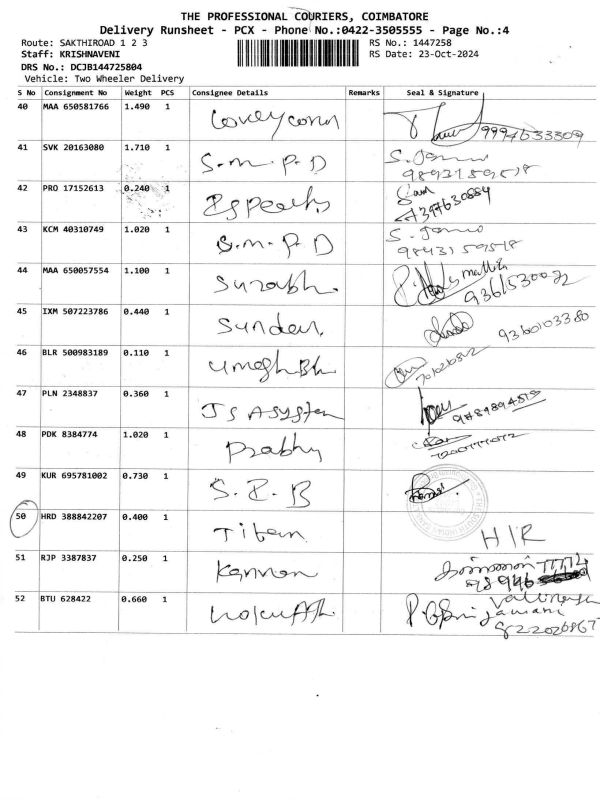 THE PROFESSIONAL COURIERS, COIMBATORE
Delivery Runsheet - PCX - Phone No.:0422-3505555 - Page No.:4
Route: SAKTHIROAD 1 2 3
RS No.: 1447258
Staff: KRISHNAVENI
RS Date: 23-Oct-2024
DRS No.: DCJB144725804
Vehicle: Two Wheeler Delivery
S No Consignment No Weight PCS Consignee Details Remarks Seal & Signature
40 MAA 650581766 1.490 1 9994633309
41 SVK 20163080 1.710 1 S.M.P.D
42 PRO 17152613 0.240 1
43 KCM 40310749 1.020 1 S.M.P.D 9843159518
44 MAA 650057554 1.100 1 Surabh. 9361530032
45 IXM 507223786 0.440 1 Sundar. 9360103380
46 BLR 500983189 0.110 1
47 PLN 2348837 0.360 1 JS ASystem
48 PDK 8384774 1.020 1 Prabhu
49 KUR 695781002 0.730 1 S.I.B
50 HRD 388842207 0.400 1 Titan H/R
51 RJP 3387837 0.250 1 Kannan
52 BTU 628422 0.660 1